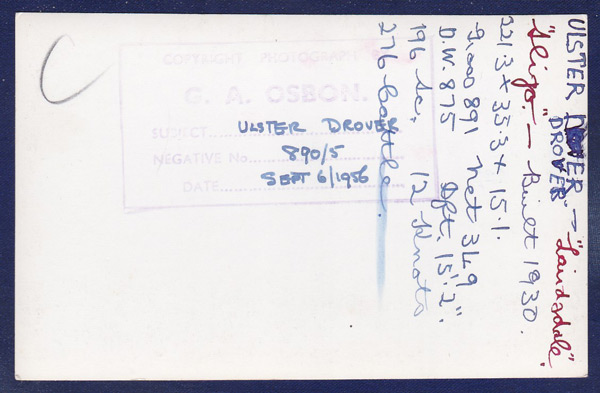 COPYRIGHT PHOTOGRAPH
G. A. OSBON.
SUBJECT
ULSTER DROVER
NEGATIVE No.
890/5
DATE
SEPT 6/1956
ULSTER — "Lairdsdale".
"DROVER"
"Sligo" — Built 1930.
221.3 x 35.3 x 15.1.
891 Net 349
D.W. 875 Dft. 15'2".
196 12 Knots
276 cattle.